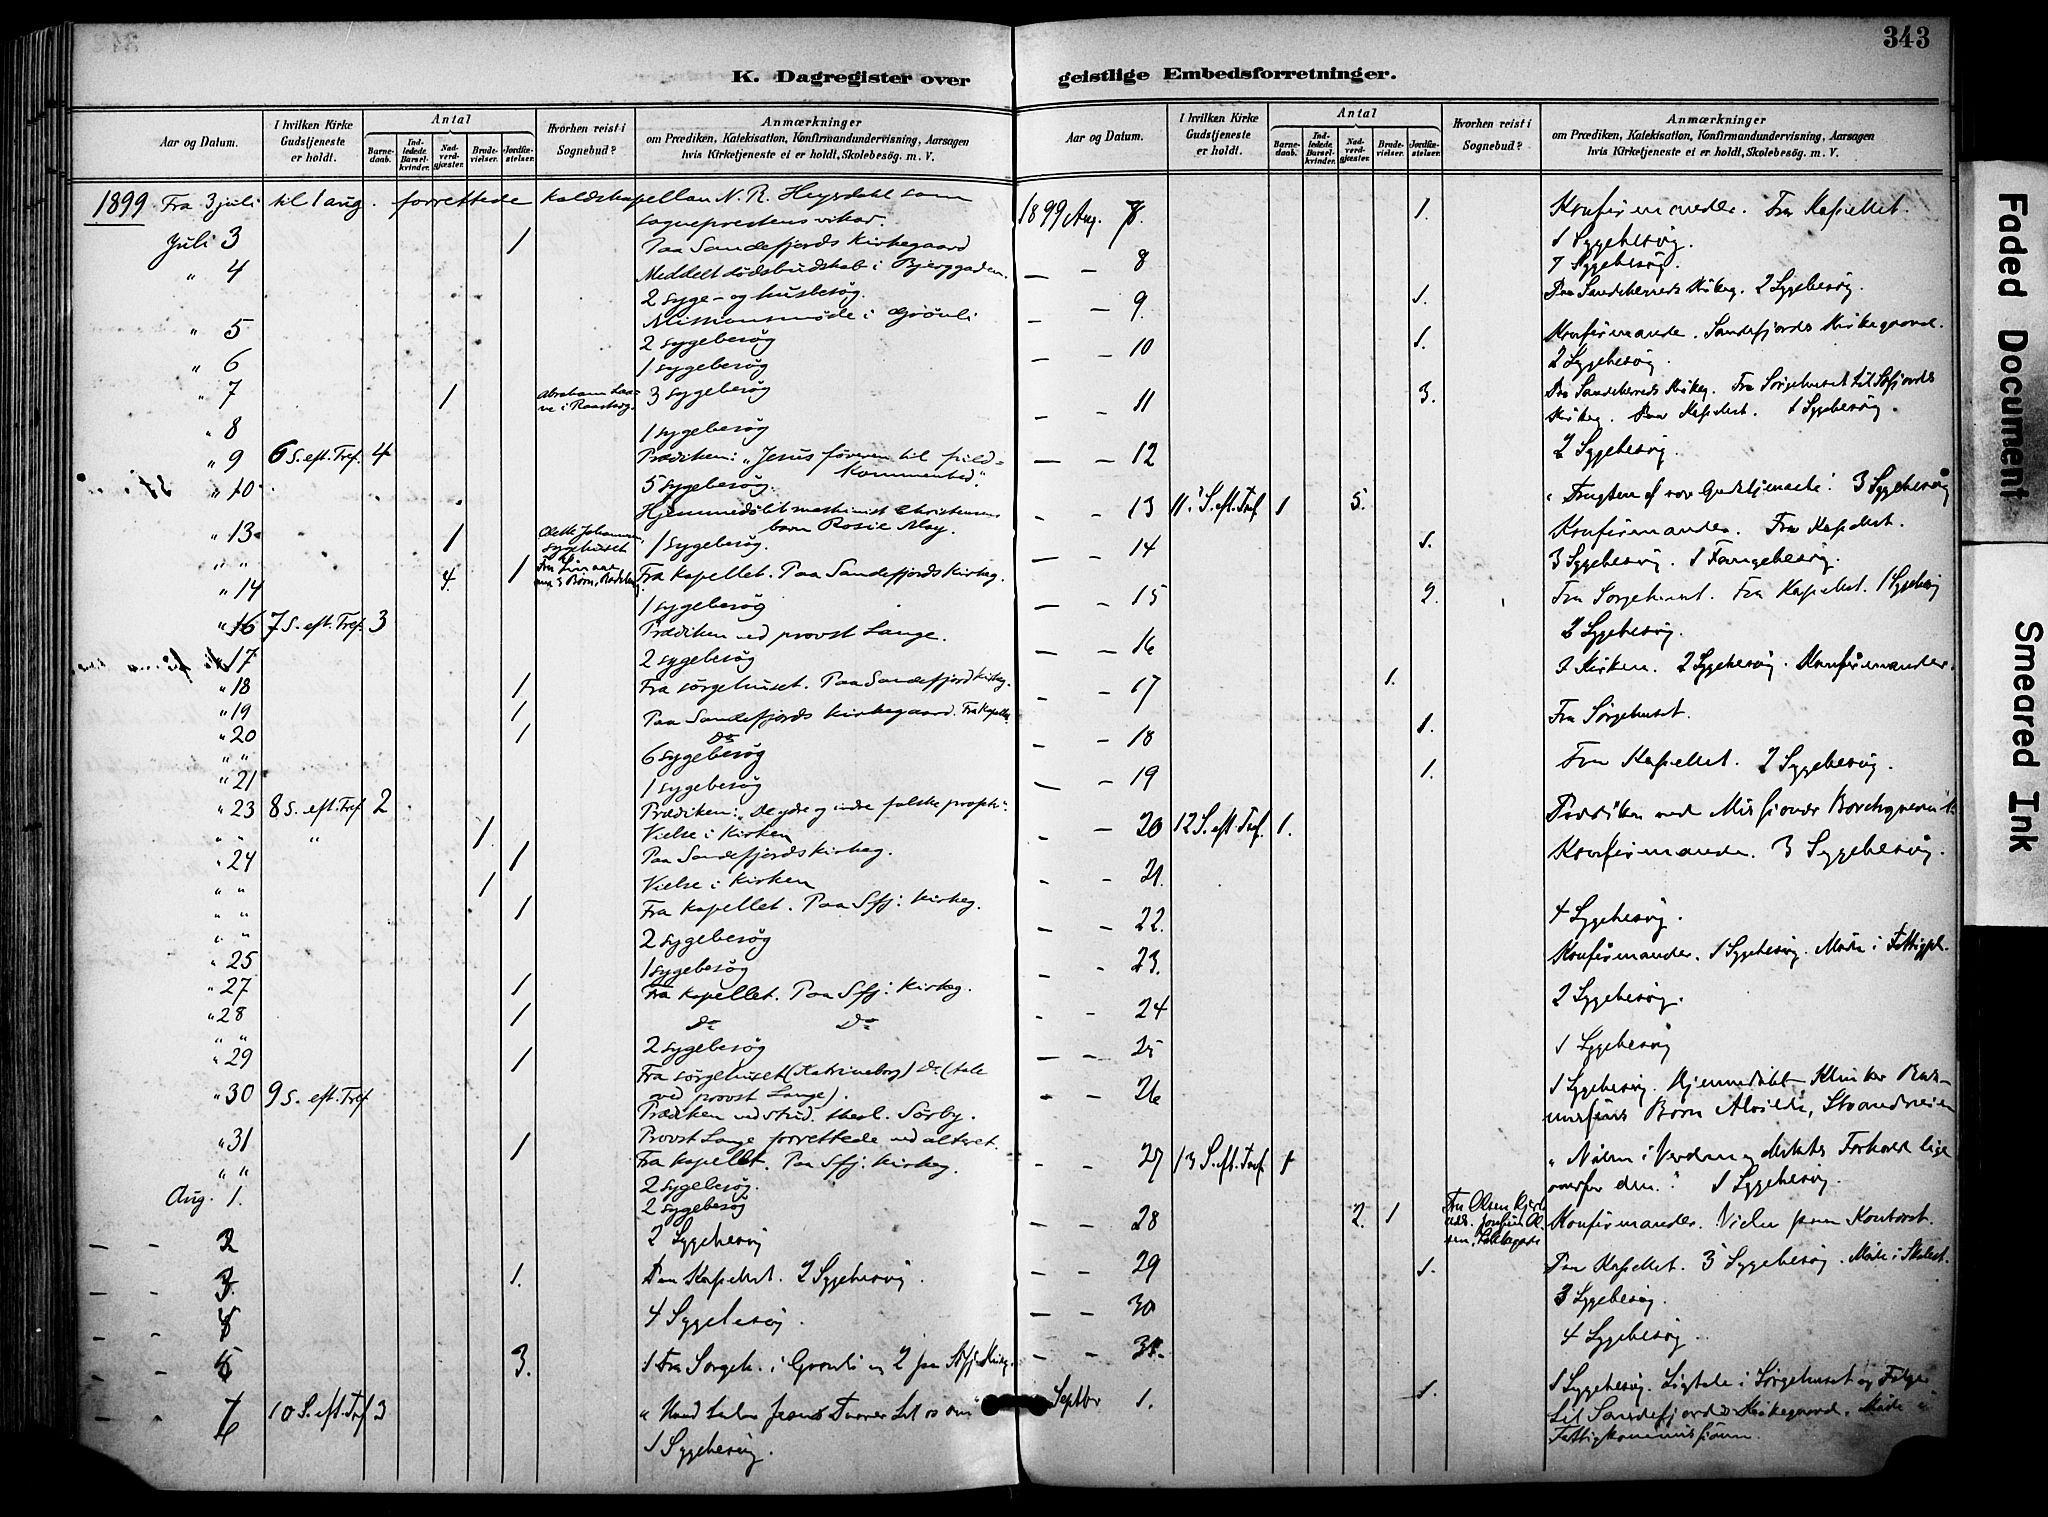 343
K. Dagregister over geistlige Embedsforretninger.
Aar og Datum.
I hvilken Kirke Gudstjeneste er holdt.
Antal
Barnedaab.
Indledede Barselkvinder.
Nadverdgjester.
Brudevielser.
Jordfæstelser.
Hvorhen reist i Sognebud?
Anmærkninger
om Prædiken, Katekisation, Konfirmandundervisning, Aarsagen
hvis Kirketjeneste ei er holdt, Skolebesøg. m. V.
1899 Fra 3 juli til 1 aug. forrettede kaldskapellan N. R. Heyerdahl som
sogneprestens vikar.
Juli 3 1 Paa Sandefjords Kirkegaard
" 4 Meddelt dødsbudskab i Bjerggaden.
2 syge- og husbesøg.
Missionsmøde i Grønli
" 5 2 sygebesøg
" 6 1 sygebesøg
" 7 1 3 sygebesøg
" 8 1 sygebesøg
" 9 6 S. eft. Tref. 4 Prædiken: "Jesus føreren til fuld-
kommenhed".
" 10 5 sygebesøg.
Hjemmedøbt maskinist Christensens
barn Rosie May.
" 13 1 Olette Johannesen, sygehuset 1 sygebesøg.
" " 4. 1 Fra kapellet. Paa Sandefjords Kirkeg.
" 14 1 sygebesøg
" 16 7 S. eft. Tref. 3 Prædiken ved provst Lange.
" 17 2 sygebesøg
" 18 1 Fra sørgehuset. Paa Sandefjord Kirkeg.
" 19 1 Paa Sandefjords Kirkegaard. Fra Kapellet
" 20 1 Do
" " 6 sygebesøg
" 21 1 sygebesøg
" 23 8 S. eft. Tref. 2 Prædiken: "De ydre og indre falske proph."
" " " 1 Vielse i Kirken
" 24 1 Paa Sandefjords Kirkeg.
" " 1 Vielse i Kirken
" " 1 Fra kapellet. Paa Sfj: Kirkeg.
" " 2 sygebesøg
" 25 1 sygebesøg
" 27 1 Fra kapellet. Paa Sfj: Kirkeg.
" 28 1 Do Do
" " 2 sygebesøg
" 29 1 Fra sørgehuset (Katrineborg) Do (tale
ved provst Lange).
" 30 9 S. eft. Tref Prædiken ved stud. theol. Sørby.
Provst Lange forrettede ved alteret.
" 31 1 Fra kapellet. Paa Sfj: Kirkeg.
" " 2 sygebesøg.
Aug. 1. 2 sygebesøg
- - 2 2 Sygebesøg
3 1. Paa Kapellet. 2 Sygebesøg.
4 Sygebesøg.
- - 5 3. 1 Fra Sørgeh. i Grønli og 2 paa Sfj. Kirkeg.
10 S. eft. Tref 3
1 Sygebesøg.
Aar og Datum.
I hvilken Kirke Gudstjeneste er holdt.
Antal
Barnedaab.
Indledede Barselkvinder.
Nadverdgjester.
Brudevielser.
Jordfæstelser.
Hvorhen reist i Sognebud?
Anmærkninger
om Prædiken, Katekisation, Konfirmandundervisning, Aarsagen
hvis Kirketjeneste ei er holdt, Skolebesøg. m. V.
1899 Aug. 7. 1. Konfirmander. Fra Kapellet.
1 Sygebesøg.
- - 8 7 Sygebesøg.
- - 9 1. Paa Sandeherreds Kirkeg. 2 Sygebesøg.
- - 10 1. Konfirmander. Sandefjords Kirkegaard.
2 Sygebesøg.
- - 11 3. Paa Sandeherreds Kirkeg. Fra Sørgehuset til Sfjords
Kirkeg. Paa Kapellet. 1 Sygebesøg.
- - 12 2 Sygebesøg.
- - 13 11 S. eft. Tref 1 5. "Frugten af vor Gudstjeneste". 3 Sygebesøg
- - 14 1. Konfirmander. Fra Kapellet.
3 Sygebesøg. 1 Fangebesøg.
- - 15 2. Fra Sørgehuset. Fra Kapellet. 1 Sygebesøg
- - 16 2 Sygebesøg.
- - 17 1. I Kirken. 2 Sygebesøg. Konfirmander.
- - 18 1. Fra Sørgehuset.
- - 19 1. Fra Kapellet. 2 Sygebesøg.
- - 20 12 S. eft. Tref. 1. Prædiken ved Missionær Borchgrevink.
- - 21. Konfirmander. 3 Sygebesøg.
- - 22. 4 Sygebesøg.
- - 23. Konfirmander. 1 Sygebesøg. Møde i Fattigpl.
- - 24 2 Sygebesøg.
- - 25 1 Sygebesøg
- - 26 1 Sygebesøg. Hjemmedøbt
Barn Alvilde, Strandveien
- - 27 13 S. eft. Tref 1 "Nøden i Verden og Forhold lige
overfor den." 1 Sygebesøg.
- - 28 2. 1 Fru Olsen Konfirmander. Vielse paa Kontoret.
- - 29 1. Paa Kapellet. 3 Sygebesøg. Møde i Skolest.
- - 30 3 Sygebesøg.
- - 31. 4 Sygebesøg.
Septbr 1. 1. 1 Sygebesøg. Ligtale i Sørgehuset og Følge
til Sandefjords Kirkegaard. Møde i
Fattigkommissionen.
Faded Document
Smeared Ink